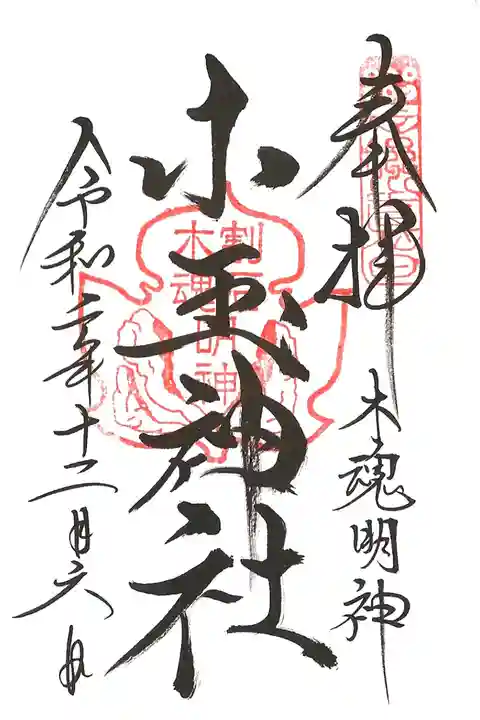 奉拝
木魂明神
小玉神社
令和二年十二月六日
木魂